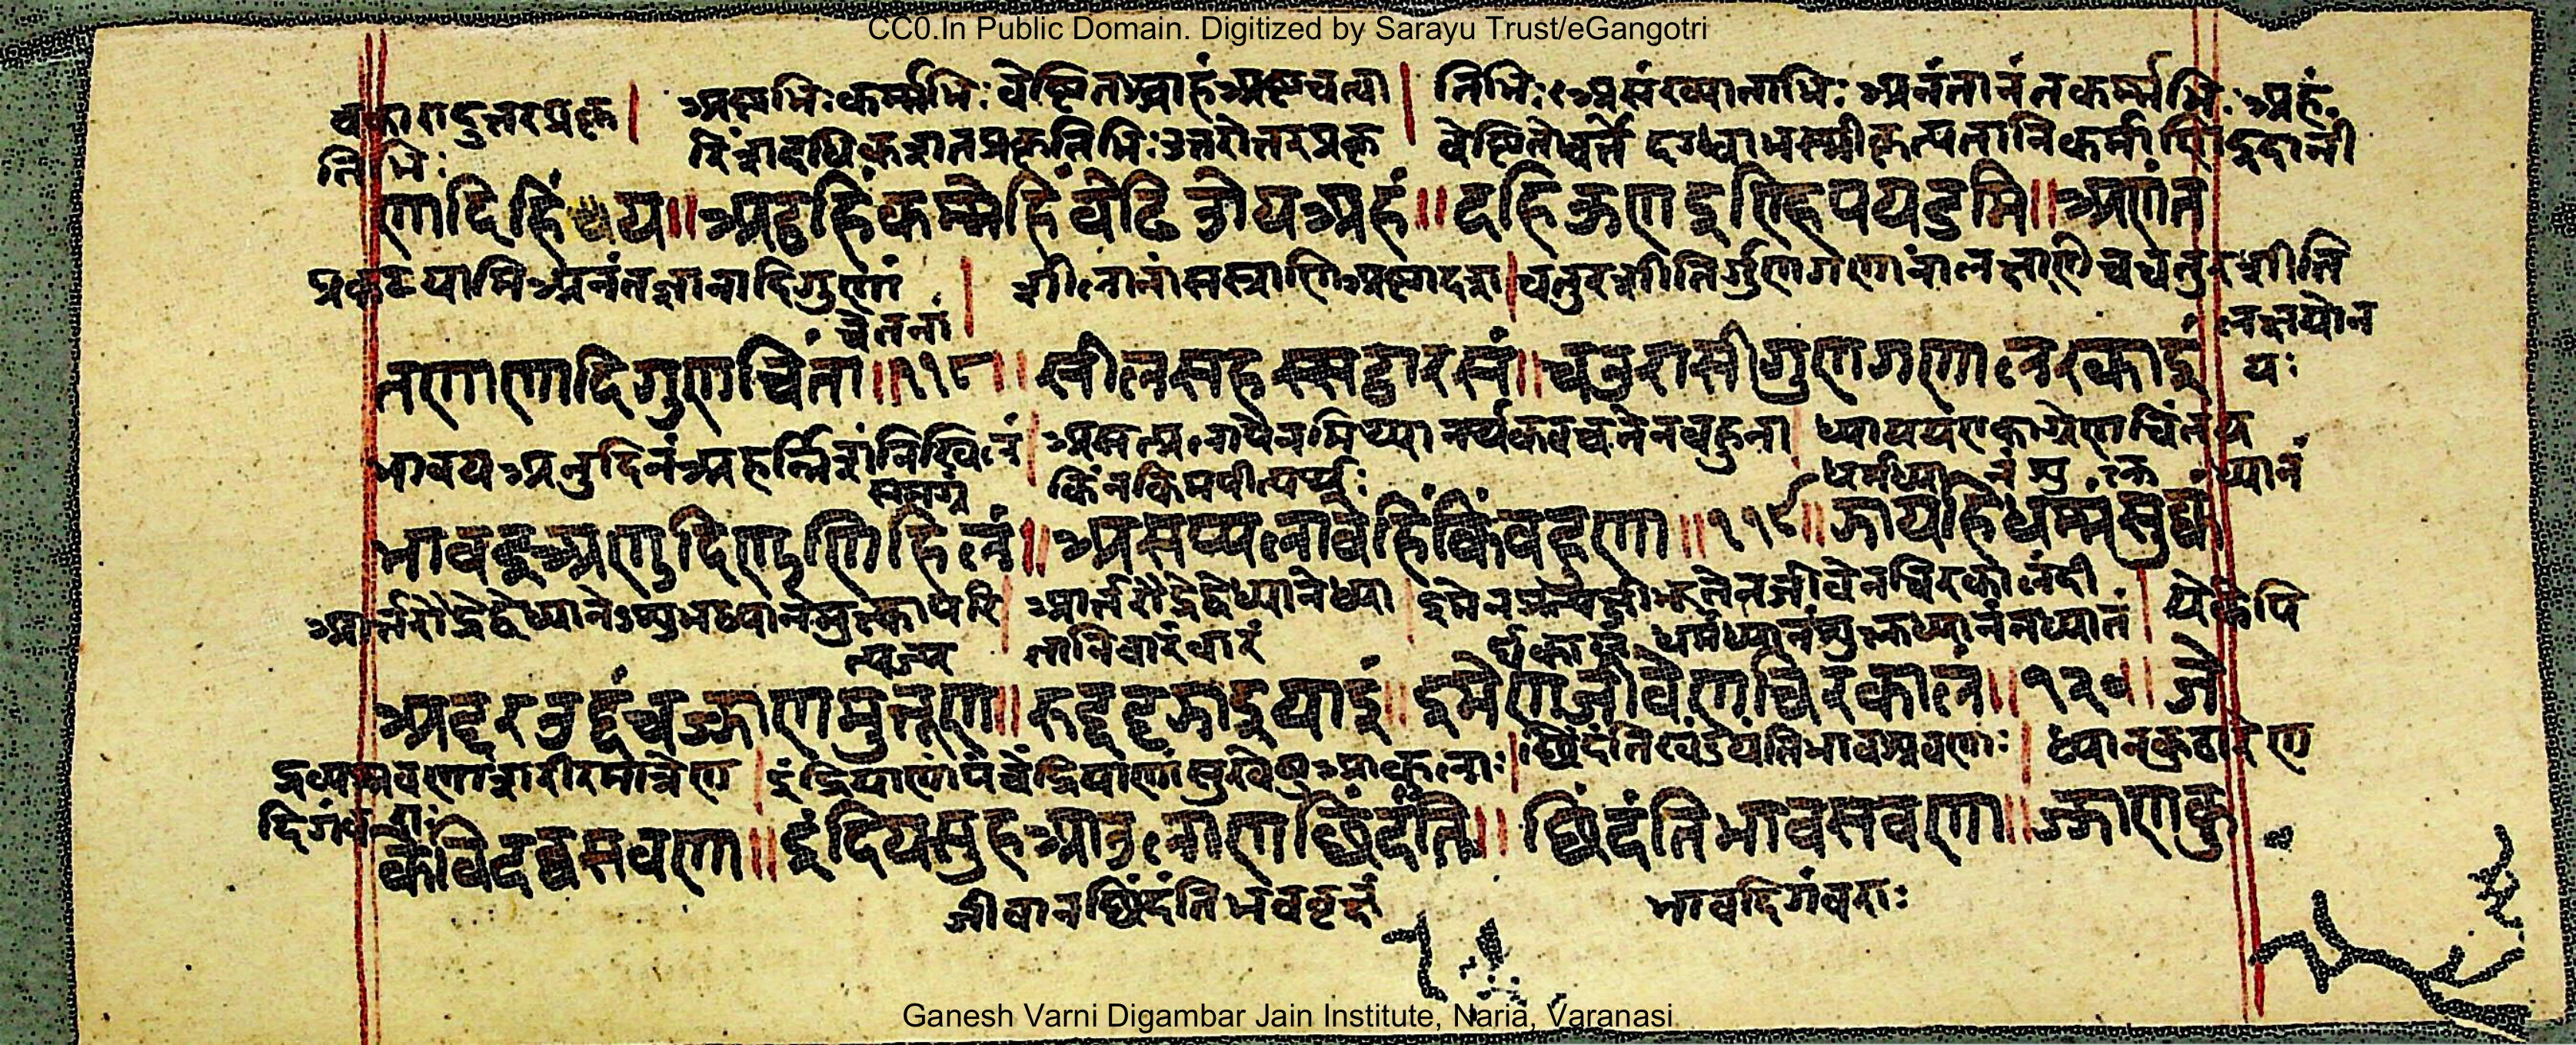 CC0.In Public Domain. Digitized by Sarayu Trust/eGangotri
चकारादुत्तरप्रकृ । अष्टभिः कर्म्मभिः वेष्टितश्चाहं अष्टचत्वा । तिभिः असंख्याताभिः अनंतानंतकर्म्मभिः अहं
तिभिः रिंशदधिकशतप्रकृतिभिः उत्तरोत्तरप्रकृ वेष्टितो वर्ते दग्ध्वा भस्मीकृत्य तानि कर्माणि इदानीं
णादिहिं य ॥ अट्ठहिं कम्मेहिं वेढिओ य अहं ॥ दहिऊण इण्हि पयडमि ॥ अणंत
प्रकटयामि अनंतज्ञानादिगुणां । शीलानां सहस्राणि अष्टादश । चतुरशीतिर्गुणगणानां लक्षाणि च चतुरशीति
चेतनां लक्षयोन
तणाणादिगुणचिंता ॥ ११८ ॥ सीलसहस्सट्ठारसं ॥ चउरासीगुणगणाण लक्खाइं यः
भावय अनुदिनं अहर्न्निशं निखिलं । असत्प्रलापेन मिथ्यानर्थकवचनेन बहुना । ध्यायय एकाग्रेण चिंतय
समग्रं किं न किमपीत्यर्थः धर्मध्यानं शुक्लध्यानं
भावहु अणुदिणु णिहिलं ॥ असप्पलावेहिं किं बहुणा ॥ ११९ ॥ झायहि धम्मं सुक्कं
आर्त्तरौद्रे द्वे ध्याने अशुभध्यान मुक्त्वा परि । आर्त्तरौद्रे द्वे ध्याने ध्या । इमेन जीवेन चिरकालं । ये केपि
त्यज्य तानि वारं वारं धर्मध्यानं शुक्लध्यानं न ध्यातं
अट्टरउद्दं च झाणमुत्तूण ॥ रुद्दट्टझाइयाइं ॥ इमेण जीवेण चिरकालं ॥ १२० ॥ जे
द्रव्यश्रवणा शरीरमात्रेण । इंद्रियाणां पंचेंद्रियाणां सुखेषु आकुलाः । छिंदंति खंडयंति भावश्रवणाः । ध्यानकुठारेण
दिगंबराः
केवि दव्वसवणा ॥ इंदियसुहआउला ण छिंदंति ॥ छिंदंति भावसवणा ॥ झाणकु
जीवा न छिंदंति भववृक्षं भावदिगंबराः
Ganesh Varni Digambar Jain Institute, Naria, Varanasi